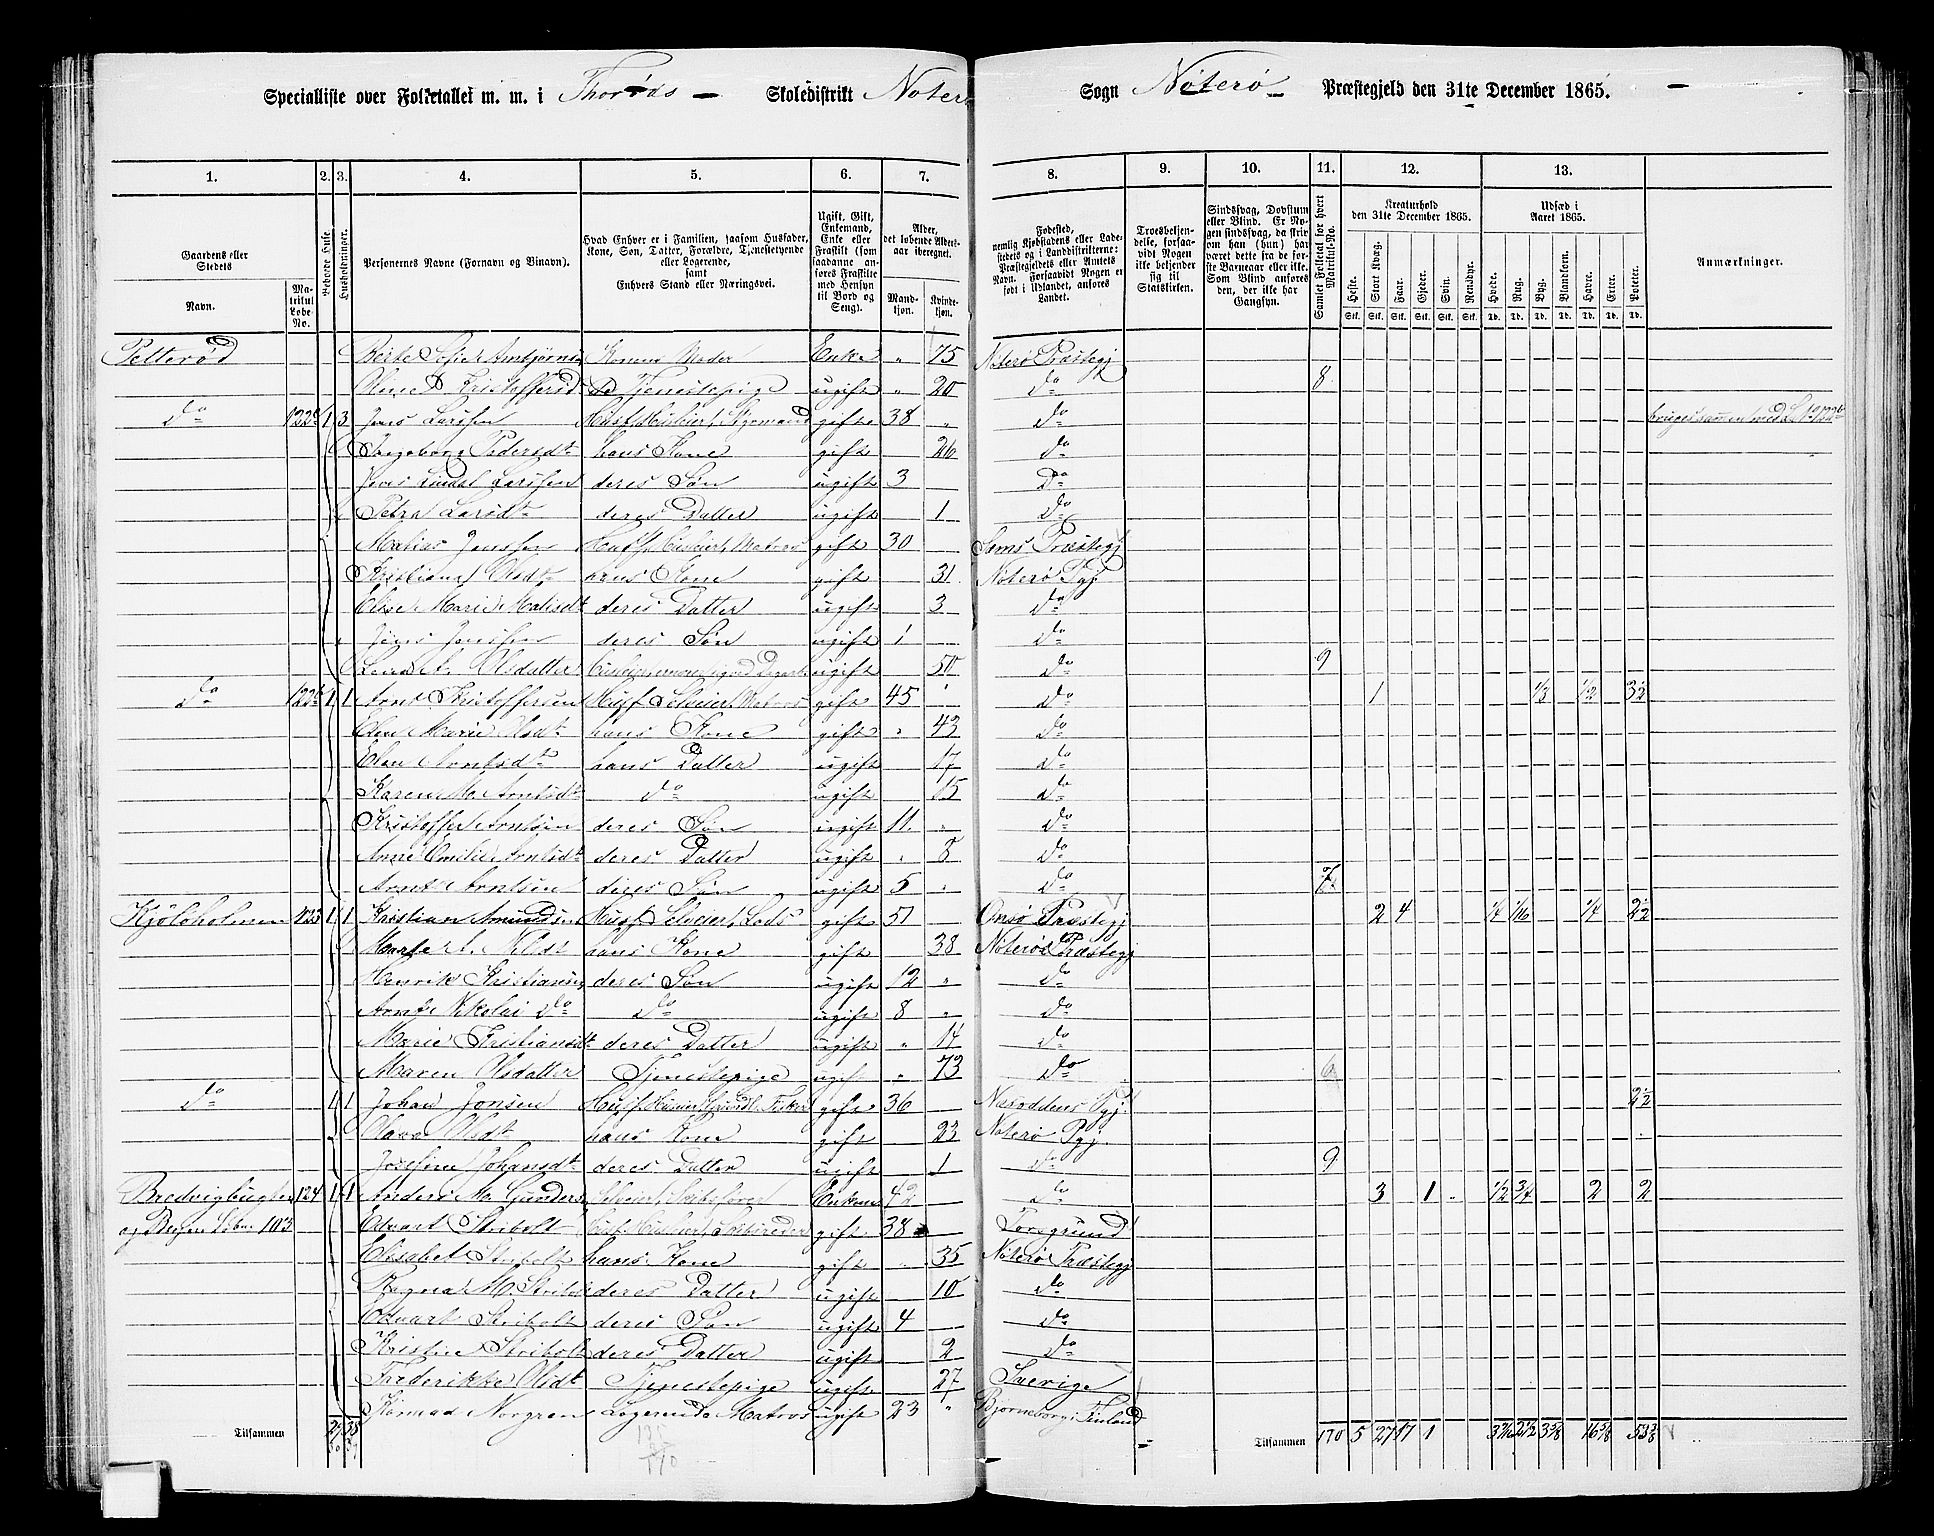 Specialliste over Folketallet m. m. i Thorøds Skoledistrikt Noterø Sogn Nøterø Præstegjeld den 31te December 1865.
1. 2. 3. 4. 5. 6. 7. 8. 9. 10. 11. 12. 13.
Gaardens eller Stedets
Navn.
Matrikul Løbe-No.
Beboede Huse.
Husholdninger.
Personernes Navne (Fornavn og Vinavn).
Hvad Enhver er i Familien, saasom Husfader, Kone, Søn, Datter, Forældre, Tjenestetyende eller Logerende, samt Enhvers Stand eller Næringsvei.
Ugift, Gift, Enkemand, Enke eller Fraskilt (som saadanne anføres Fraskilte med Hensyn til Bord og Seng).
Alder, det løbende Alders-aar iberegnet.
Mandkjøn. Kvindekjøn.
Fødested, nemlig Kjøbstadens eller Ladestedets og i Landdistrikterne: Præstegjeldets eller Amtets Navn. Forsaavidt Nogen er født i Udlandet, anføres Landet.
Troesbekjendelse, forsaavidt Nogen ikke bekjender sig til Statskirken.
Sindssvag, Døvstum eller Blind. Er Nogen sindssvag, da skrives om han (hun) har været dette fra de første Barneaar eller ikke. Som Blind anføres den, der ikke har Gangsyn.
Samlet Folketal for hvert Matrikul-No.
Kreaturhold den 31te December 1865.
Heste. Stort Kvæg. Faar. Gjeder. Svin. Rensdyr.
Udsæd i Aaret 1865.
Hvede. Rug. Byg. Blandkorn. Havre. Erter. Poteter.
Anmærkninger.
Petterød Berte Sofie Arntjørns Konens Moder Enke " 75 Noterø Præstegj
Kristoffersd Tjenestepige ugift " 20 do 8
do 122c 1 3 Jens Larssen Husf. Huseier, Sjømand gift 38 " do
Ingeborg Pedersdt hans Kone gift 26 do
Jens Larssen deres Søn ugift 3 Do
Petra Larsdt deres Datter ugift 1 do
Matias Jenssen Husf. Huseier, Matros gift 30 Sems Præstegj
Kristiane Olsdt hans Kone gift 31 Noterø Pgj
Marie Matisdt deres Datter ugift 3 do
Jens Jenssen deres Søn ugift 1 do
Olsdatter ugift 50 do 9
do 1 1 Arnt Kristoffersen Husf. Selveier, Matros gift 45 do 1 1/3 1/2 3 1/2
Marie Olsdt hans Kone gift 43 do
Elen Arntsdt hans Datter ugift 17 do
Karen M. Arntsdt do ugift 15 do
Kristoffer Arntsen deres Søn ugift 11 " do
Anne Emilie Arntsdt deres Datter ugift " 8 do
Arnt Arntsen deres Søn ugift 5 " do 7
Kjøløholmen 123 1 1 Kristian Amundsen Husf. Selveier, Lods gift 51 Onsø Præstegj 2 4 1/4 1/16 1/4 2 1/2
Nilsdt hans Kone gift 38 Nøterø Præstegj
Henrik Kristiansen deres Søn ugift 12 " do
Arnt Nikolai do do ugift 8 " do
Marie Kristiansdt deres Datter ugift " 14 do
Maren Olsdatter Tjenestepige ugift " 73 do 6
do 1 1 Johan Jonsen Husf. Fisker gift 36 Næsoddens Pgj. 2 1/2
Olava Olsdt hans Kone gift 23 Noterø Pgj.
Josefine Johansdt deres Datter ugift 1 do 9
Bredvigbugten 124 1 1 Anders M. Gunders Selveier, Skibsfører Enkem 42 do 3 1 1/2 3/4 2 2
Edvart Stribolt Husf. Huseier, Skibsreder gift 38 Porsgrund
Elisabet Stribolt hans Kone gift 35 Nøterø Præstegj
Ragna M. Stribolt deres Datter ugift 10 do
Edvart Stribolt deres Søn ugift 4 do
Kristine Stribolt deres Datter ugift 2 do
Frederikke Olsdt Tjenestepige ugift 27 Sverige
Konrad Norgren Logerende Matros ugift 23 " Bjorneborg i Finland
Tilsammen 29 38 Tilsammen 170 5 27 17 1